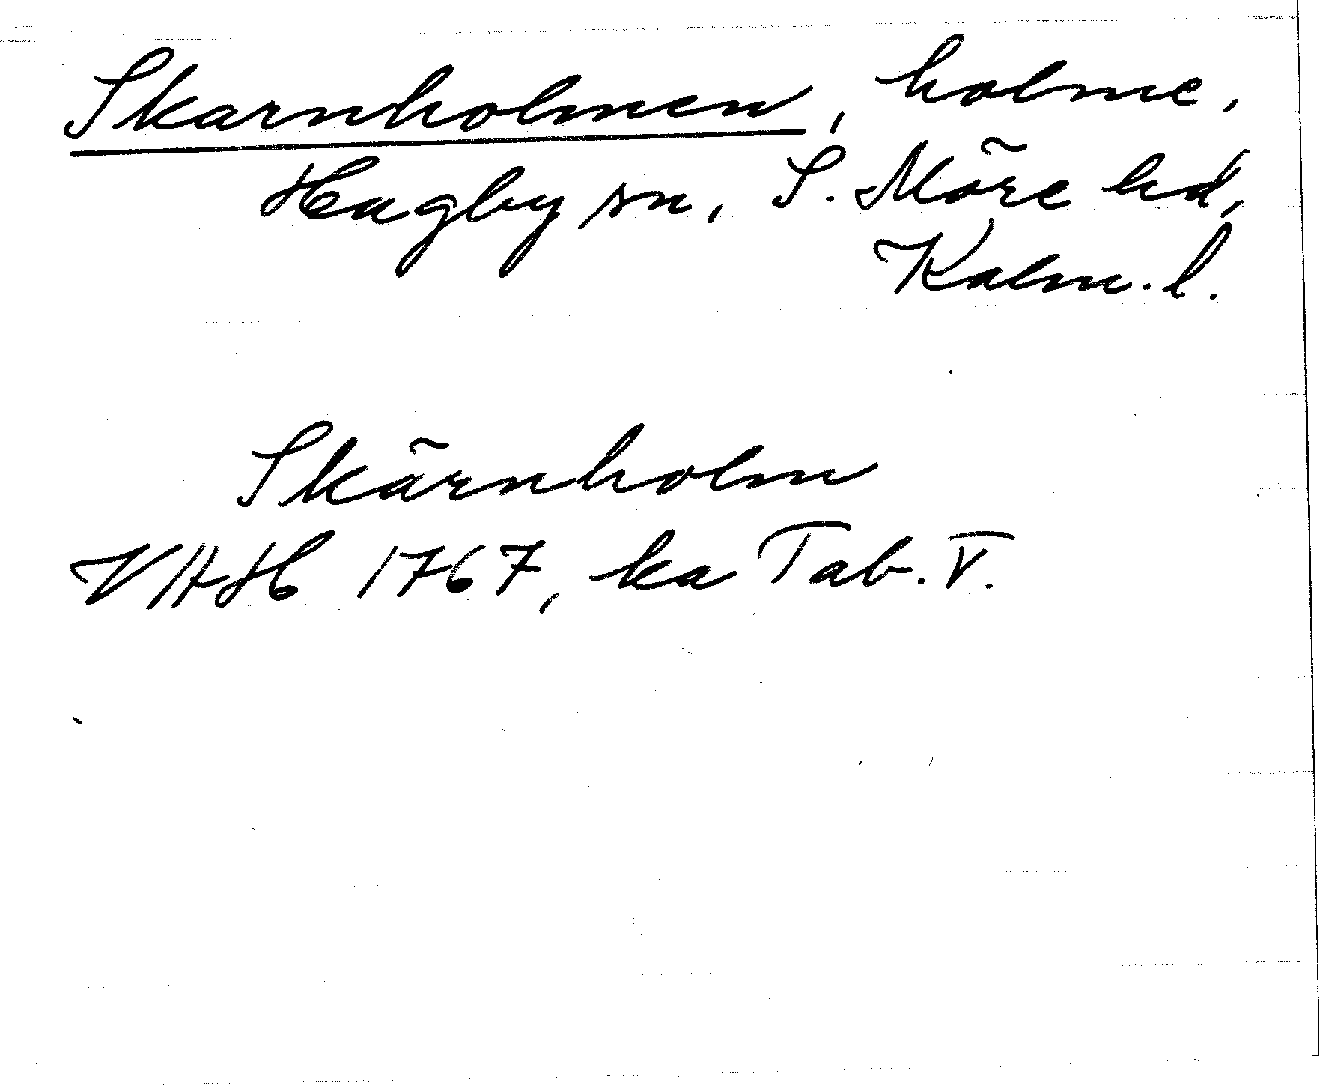 Skarnholmen, holme,
Hagby sn, S. Möre hd,
Kalm. l.
Skärnholm
VAH 1767, ka Tab. V.